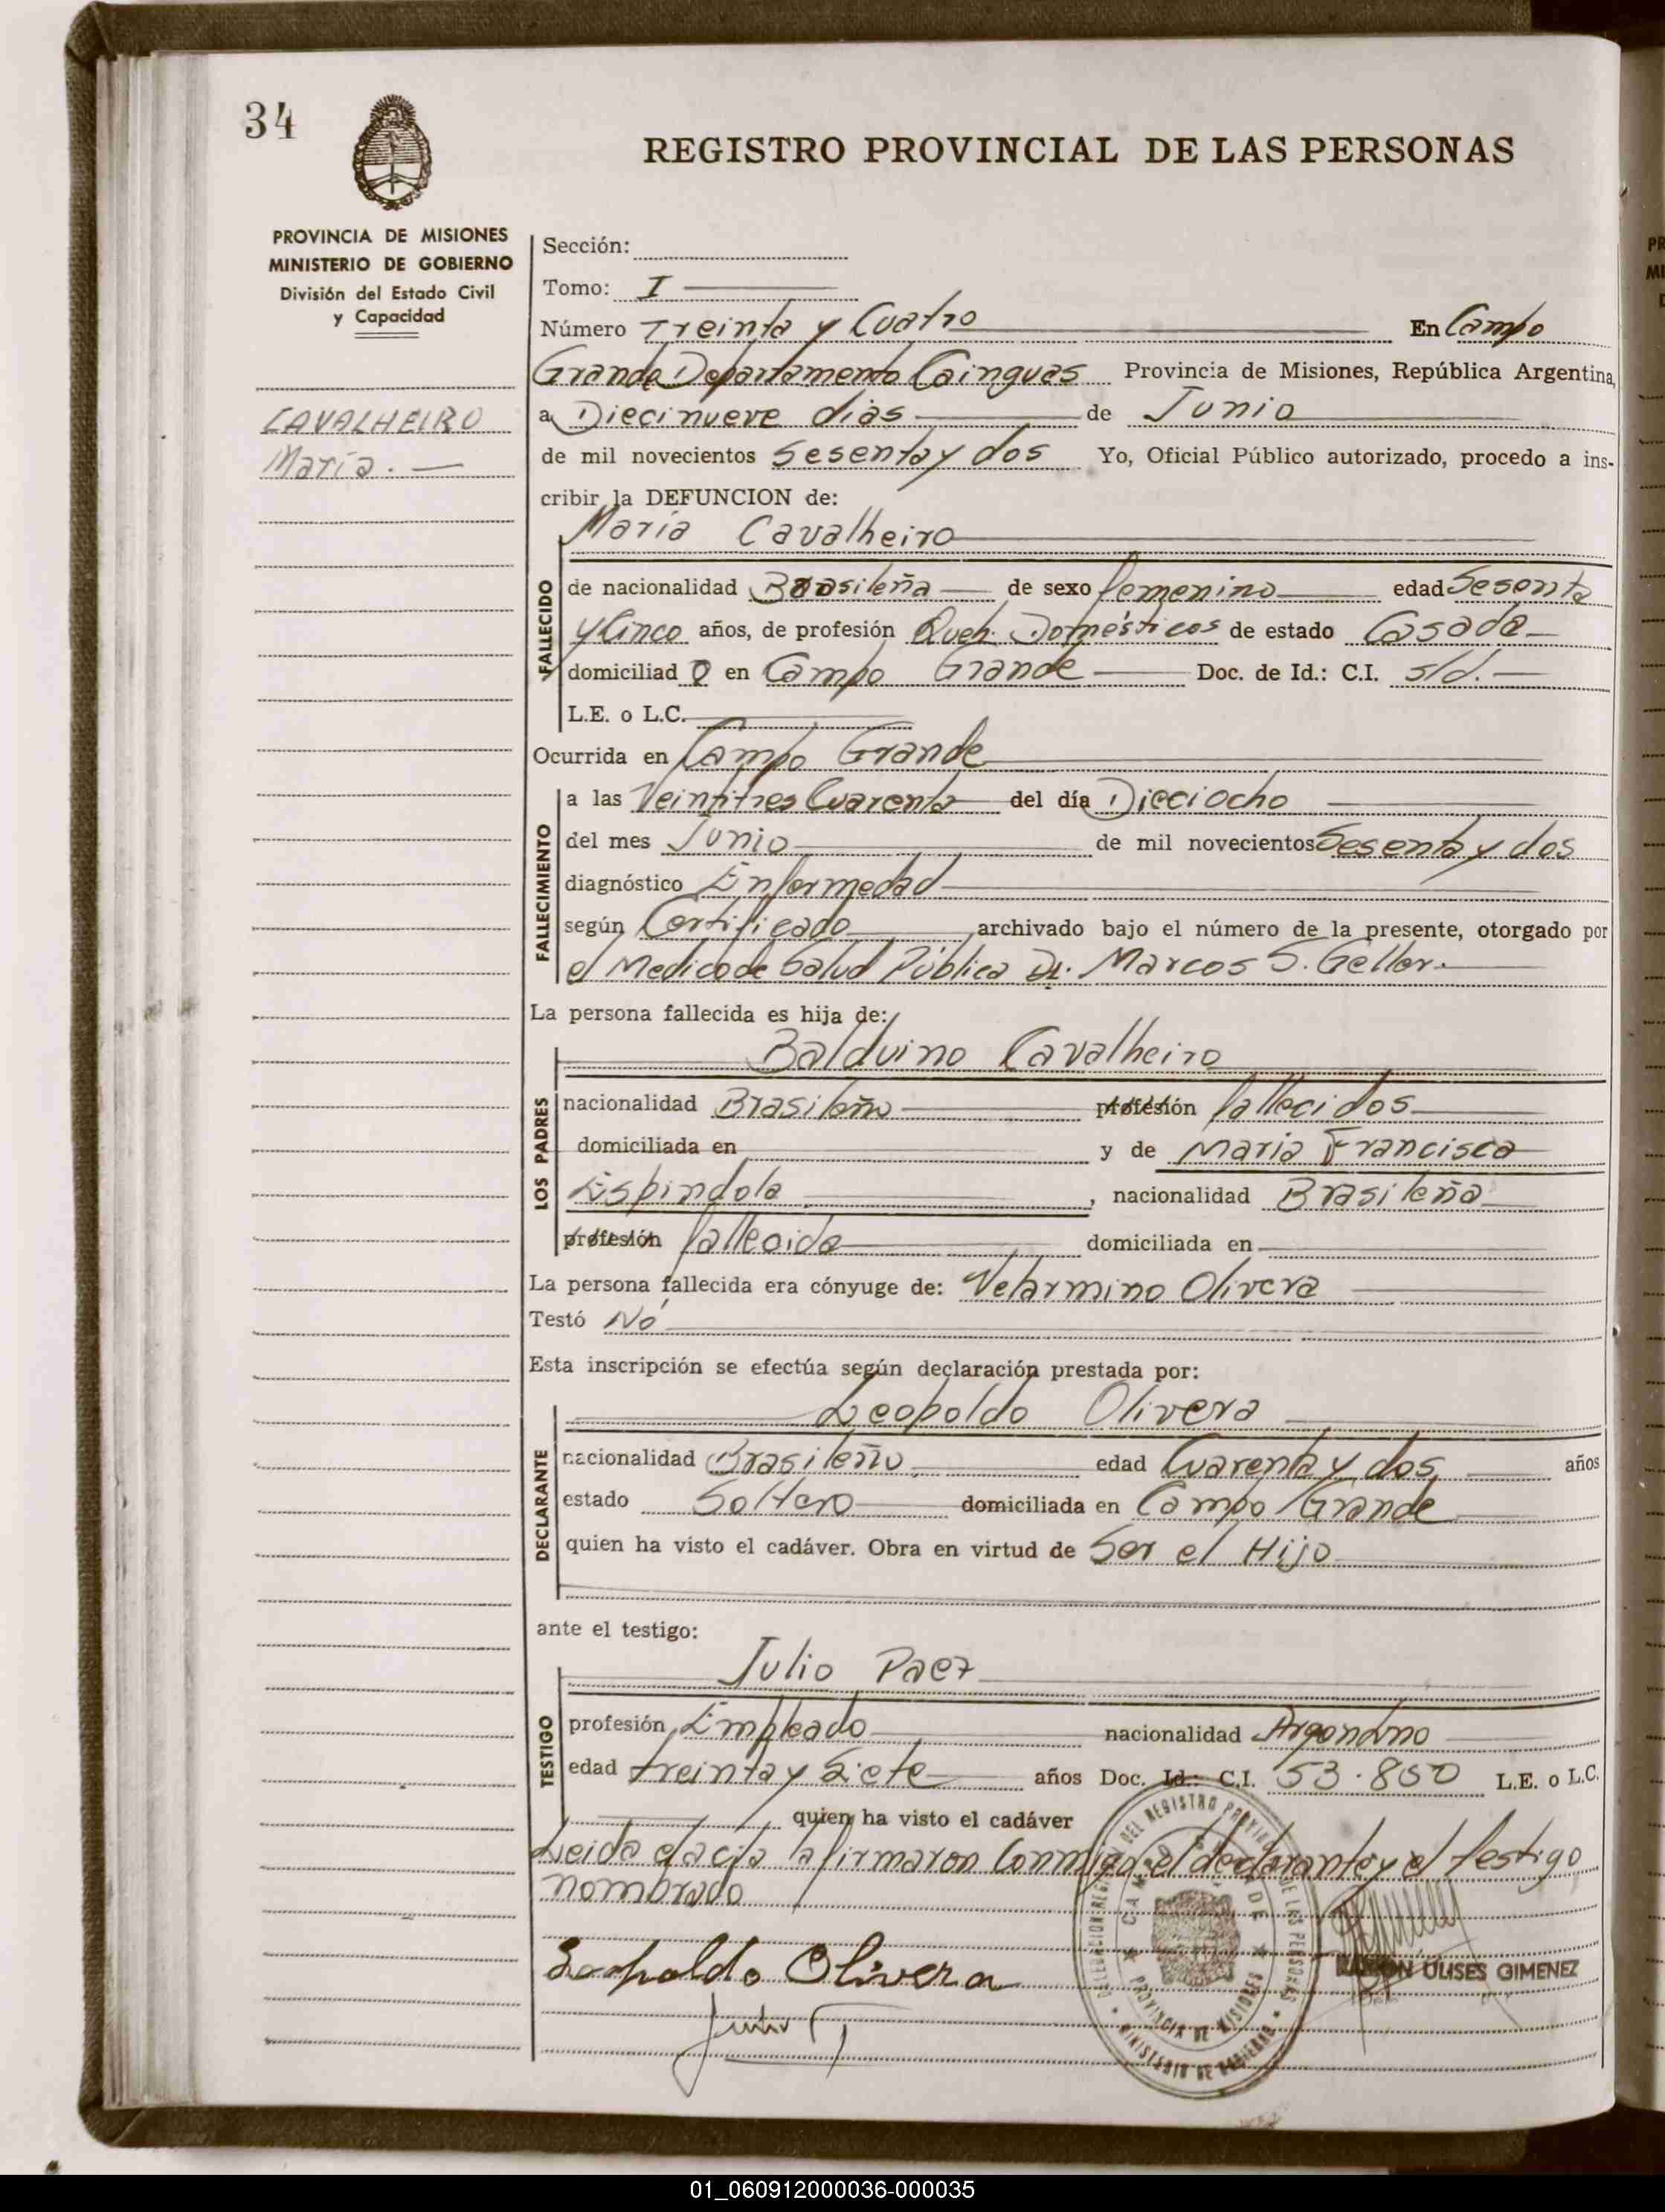 34
REGISTRO PROVINCIAL DE LAS PERSONAS
PROVINCIA DE MISIONES
MINISTERIO DE GOBIERNO
División del Estado Civil
y Capacidad
CAVALHEIRO
María.
Sección:
Tomo: I
Número Treinta y Cuatro En Campo
Grande Departamento Cainguas Provincia de Misiones, República Argentina,
a Diecinueve dias de Junio
de mil novecientos Sesenta y dos Yo, Oficial Público autorizado, procedo a ins-
cribir la DEFUNCION de:
María Cavalheiro
FALLECIDO
de nacionalidad Brasileña de sexo femenino edad Sesenta
y Cinco años, de profesión Queh. Domésticos de estado Casada
domiciliad a en Campo Grande Doc. de Id.: C.I. s/d.
L.E. o L.C.
Ocurrida en Campo Grande
FALLECIMIENTO
a las Veintitres Cuarenta del día Dieciocho
del mes Junio de mil novecientos Sesenta y dos
diagnóstico Enfermedad
según Certificado archivado bajo el número de la presente, otorgado por
el Medico de Salud Pública Dr. Marcos S. Geller.
La persona fallecida es hija de:
Balduino Cavalheiro
LOS PADRES
nacionalidad Brasileño profesión fallecidos
domiciliada en y de Maria Francisca
Espindola, nacionalidad Brasileña
profesión fallecida domiciliada en
La persona fallecida era cónyuge de: Velarmino Olivera
Testó Nó
Esta inscripción se efectúa según declaración prestada por:
Leopoldo Olivera
DECLARANTE
nacionalidad Brasileño edad Cuarenta y dos años
estado Soltero domiciliada en Campo Grande
quien ha visto el cadáver. Obra en virtud de Ser el Hijo
ante el testigo:
Julio Paez
TESTIGO
profesión Empleado nacionalidad Argentino
edad treinta y Siete años Doc. Id.: C.I. 53.850 L.E. o L.C.
quien ha visto el cadáver
Leida el acta la firmaron Conmigo el declarante y el testigo
nombrado
Leopoldo Olivera
RAMON ULISES GIMENEZ
PROVINCIA DE MISIONES
MINISTERIO DE GOBIERNO
01_060912000036-000035